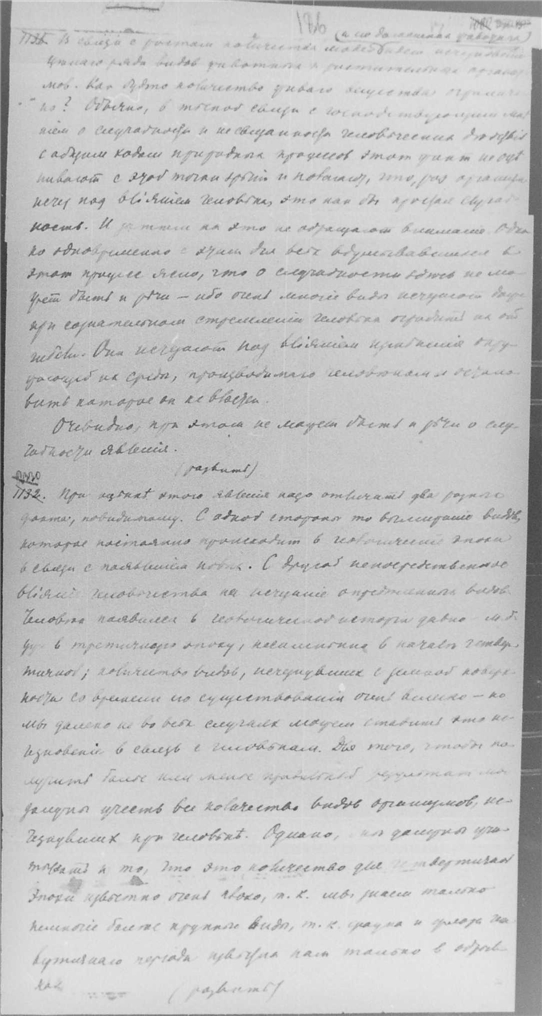 126 (а м. домашния говорил)
1131. В связи с ростом количества может быть исчезновение
целаго ряда видов животных и растительных организ
мов. Как будто количество живаго вещества ограничен
но? Обычно, в тесной связи с господствующим мне
нием о случайности и несвязанности человеческих
с общим ходом природных процессов этот факт не оце
нивают с этой точки зрения и полагают, что, раз организм
исчез под влиянием человека, это как бы простая случай
ность. И на это не обращают внимания. Одна
ко одновременно с этим для всех вдумывавшихся в
этот процесс ясно, что о случайности здесь не мо
жет быть и речи – ибо очень многие виды исчезают даже
при сознательном стремлении человека оградить их от
гибели. Они исчезают под влиянием изменения окру
жающей их среды, производимаго человеком и остано
вить которое он не властен.
Очевидно, при этом не может быть и речи о слу
чайности явления.
(развить)
1132. При оценке этого явления надо отличать два разных
факта, повидимому. С одной стороны то вымирание видов,
которое постоянно происходит в геологические эпохи
в связи с появлением новых. С другой непосредственное
влияние человечества на исчезание определенных видов.
Человек появился в геологической истории давно – м. б.
уже в третичную эпоху, несомненно в начале четвер
тичной; количество видов, исчезнувших с земной поверх
ности со времени его существования очень велико – но
мы далеко не во всех случаях можем ставить это ис
чезновение в связь с человеком. Для того, чтобы по
лучить более или менее правильный результат мы
должны учесть все количество видов организмов, ис
чезнувших при человеке. Однако, мы должны учи
тывать и то, что это количество для четвертичной
эпохи известно очень плохо, т. к. мы знаем только
немногие более крупные виды, т. к. фауна и флора
периода известна нам только в обрыв
ках (развить)